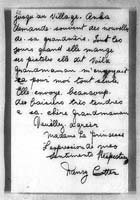 jusqu'au village. Anka
demande souvent des nouvelles
de sa grandmère. Tout les
jours quand elle mange
ses petites elle dit Voilà
grandmaman m'envoyait
ça pour moi tout seule
Elle envoye beaucoup
des baisers très tendres
a sa chère grandmaman
Veuillez agréer
Madame la Princesse
l'expression de mes
sentiments Respectueux
Fanny Cotter